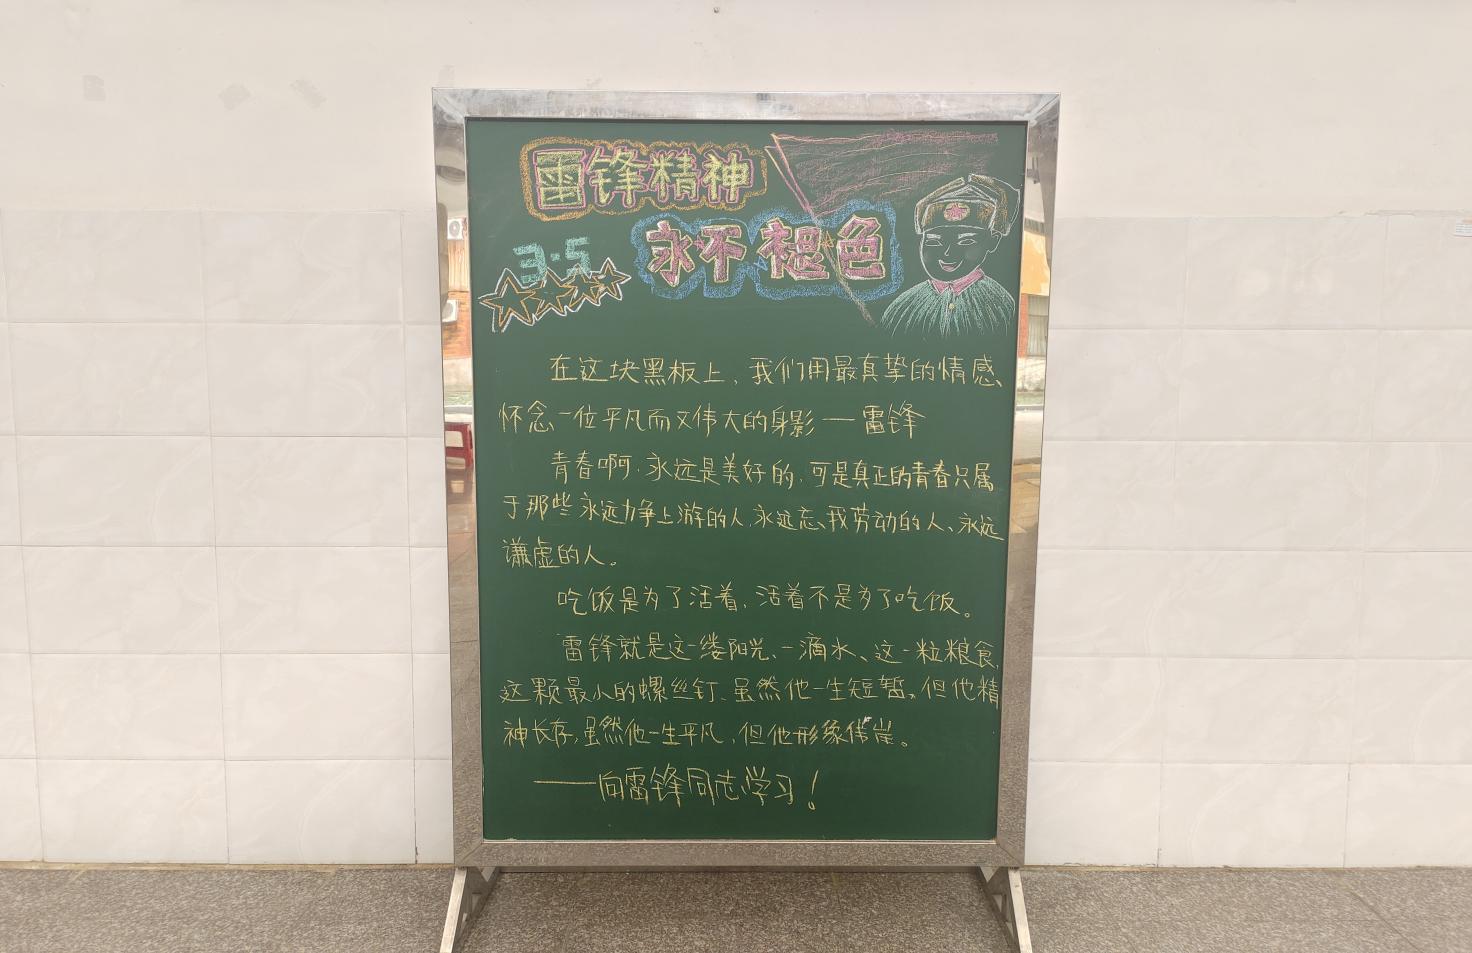 雷锋精神
永不褪色
3·5
在这块黑板上、我们用最真挚的情感、
怀念一位平凡而又伟大的身影——雷锋
青春啊,永远是美好的,可是真正的青春只属
于那些永远力争上游的人,永远忘我劳动的人、永远
谦虚的人。
吃饭是为了活着,活着不是为了吃饭。
雷锋就是这一缕阳光、一滴水、这一粒粮食,
这颗最小的螺丝钉、虽然他一生短暂。但他精
神长存,虽然他一生平凡,但他形象伟岸。
——向雷锋同志学习!